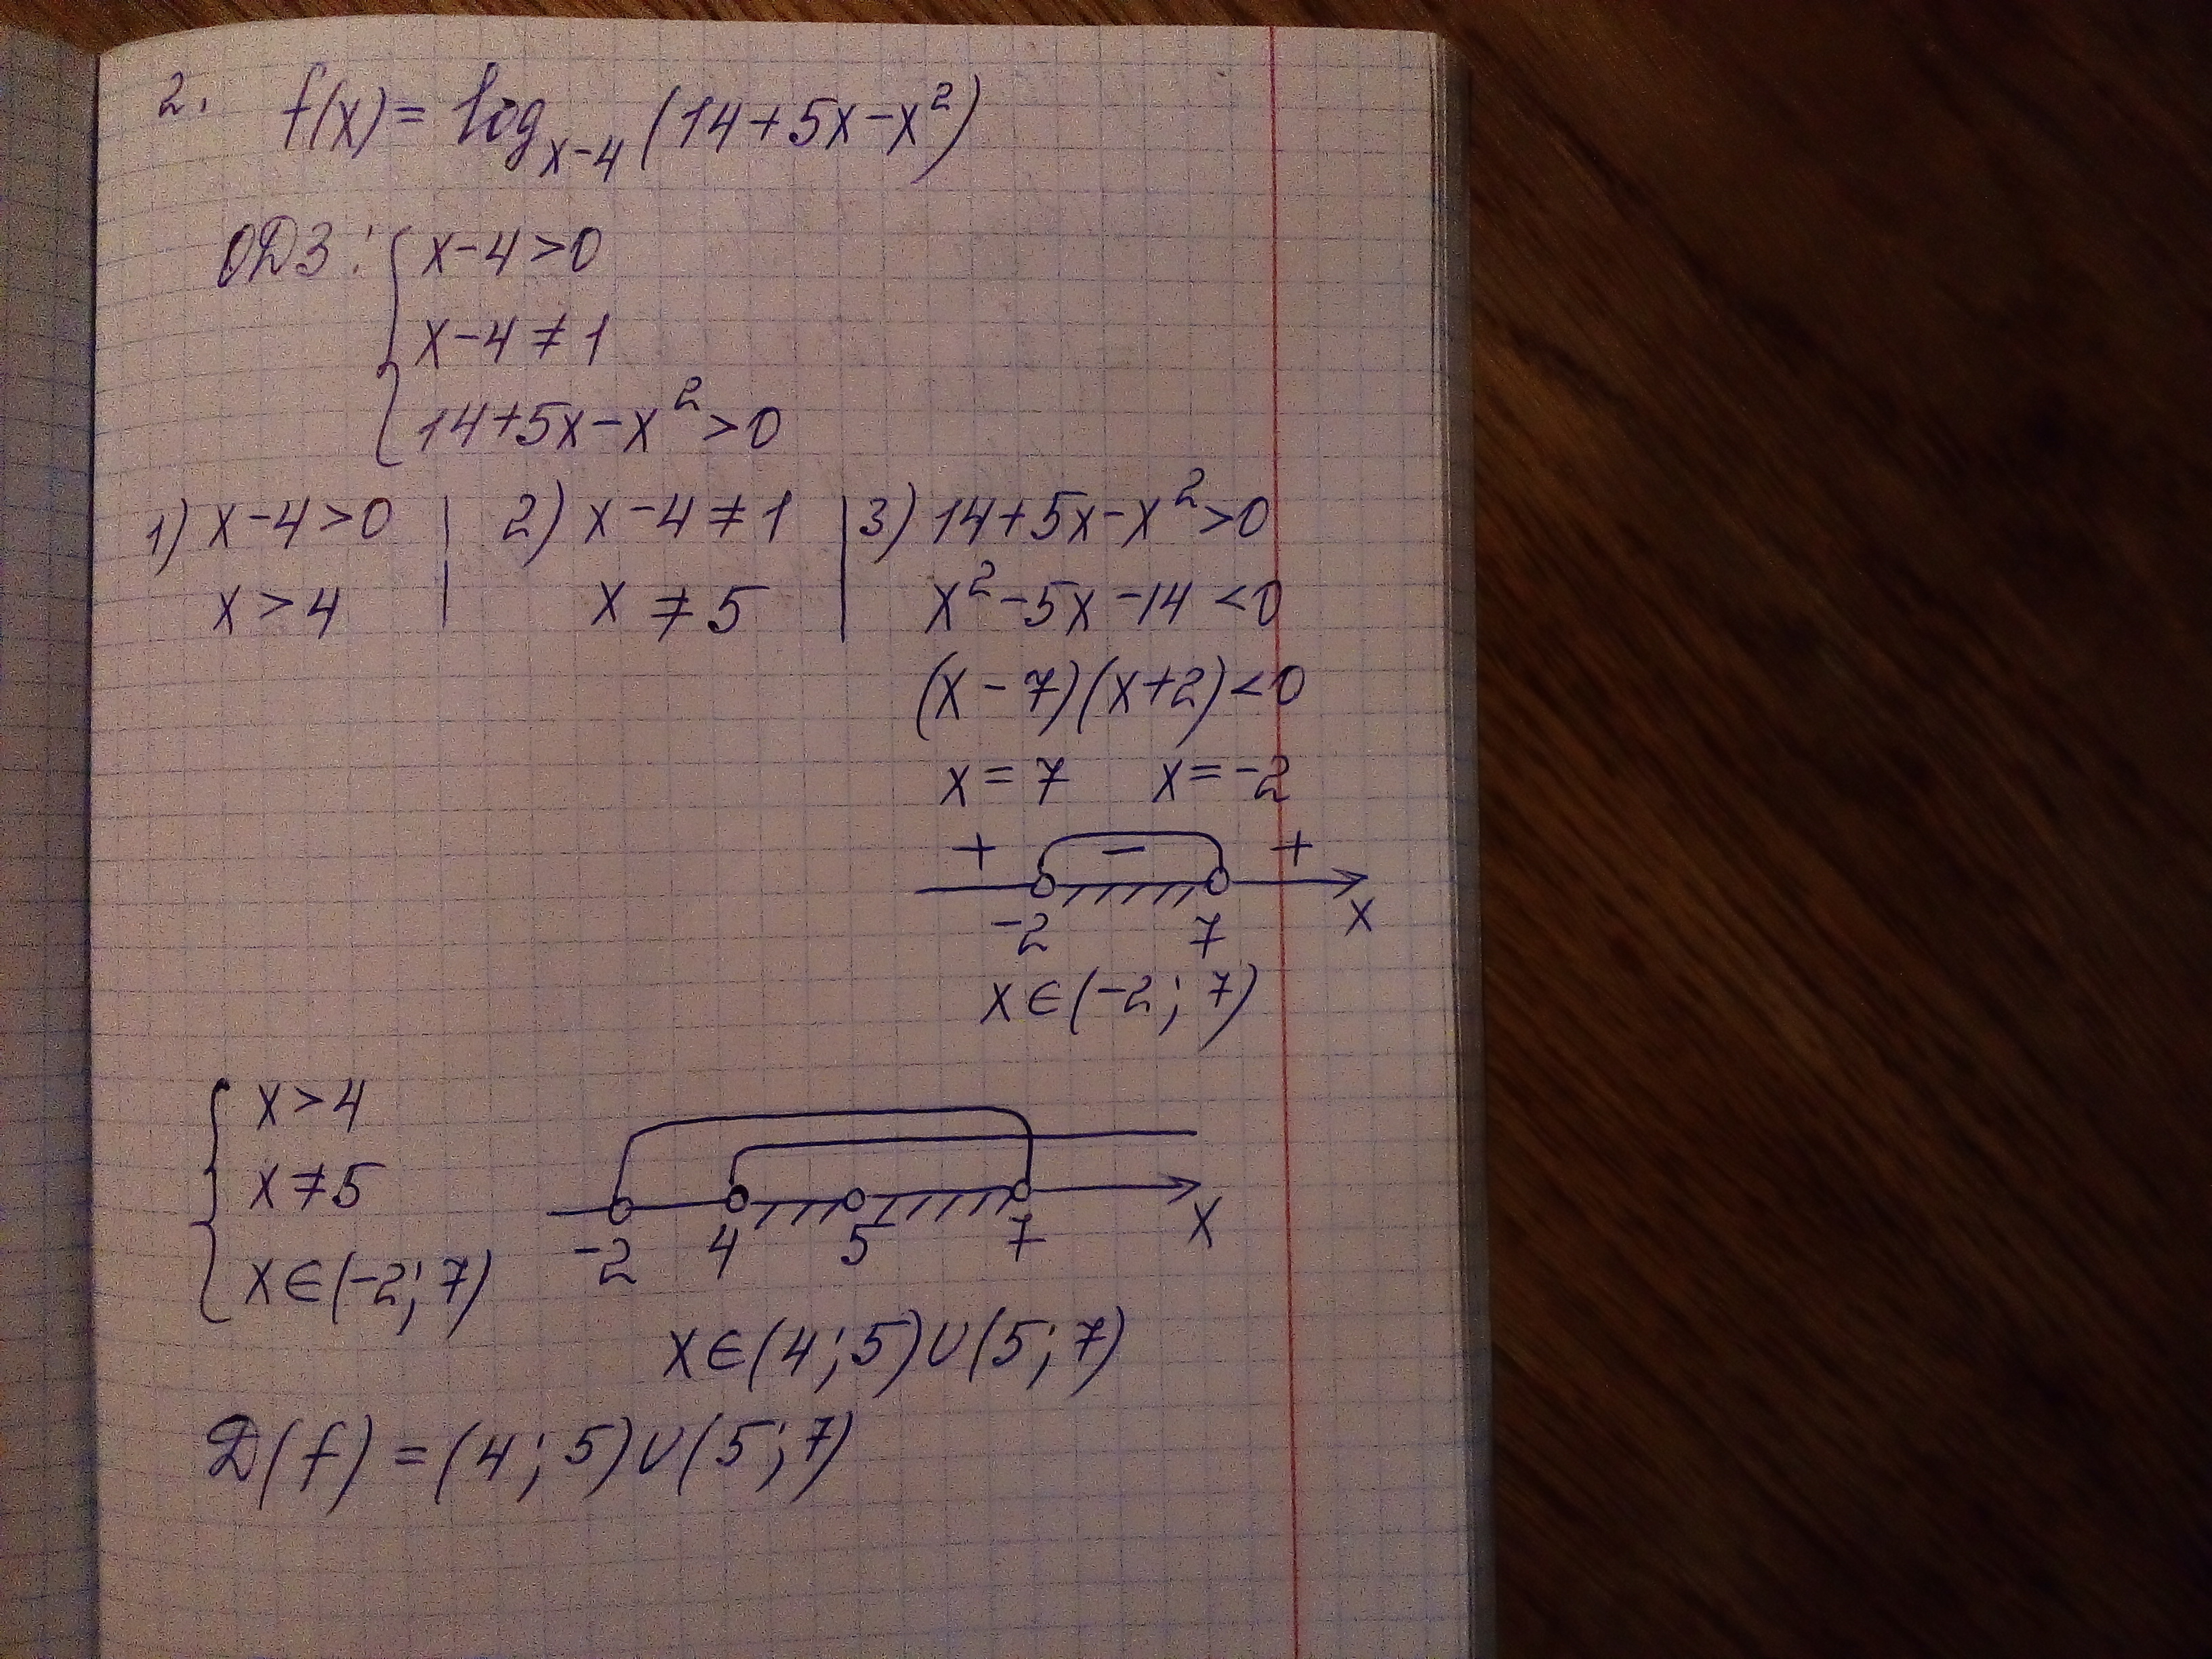 2. f(x) = log_{x-4} (14+5x-x²)
ОДЗ: { x-4>0
x-4≠1
14+5x-x²>0
1) x-4>0 | 2) x-4≠1 | 3) 14+5x-x²>0
x>4 | x≠5 | x²-5x-14<0
(x-7)(x+2)<0
x=7 x=-2
+ - +
-2 7 x
x∈(-2; 7)
{ x>4
x≠5
x∈(-2; 7)
-2 4 5 7 x
x∈(4; 5)∪(5; 7)
D(f) = (4; 5)∪(5; 7)